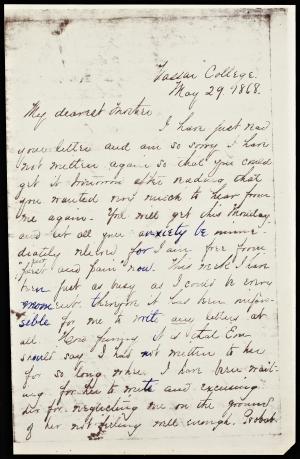 Vassar College.
May 29 1868.
My dearest Mother
I have just read
your letter and am so sorry I have
not written again so that you could
get it tomorrow after reading that
you wanted so much to hear from
me again. You will get this Monday
and let all your anxiety be imme-
diately relieved for I am free from
and pain now. This week I have
been just as busy as I could be every
moment. therefore it has been impos-
sible for me to write any letters at
all. How funny it is that Em
should say I had not written to her
for so long while I have been wait-
ing for her to write and excusing
her for neglecting me on the ground
of her not feeling well enough.